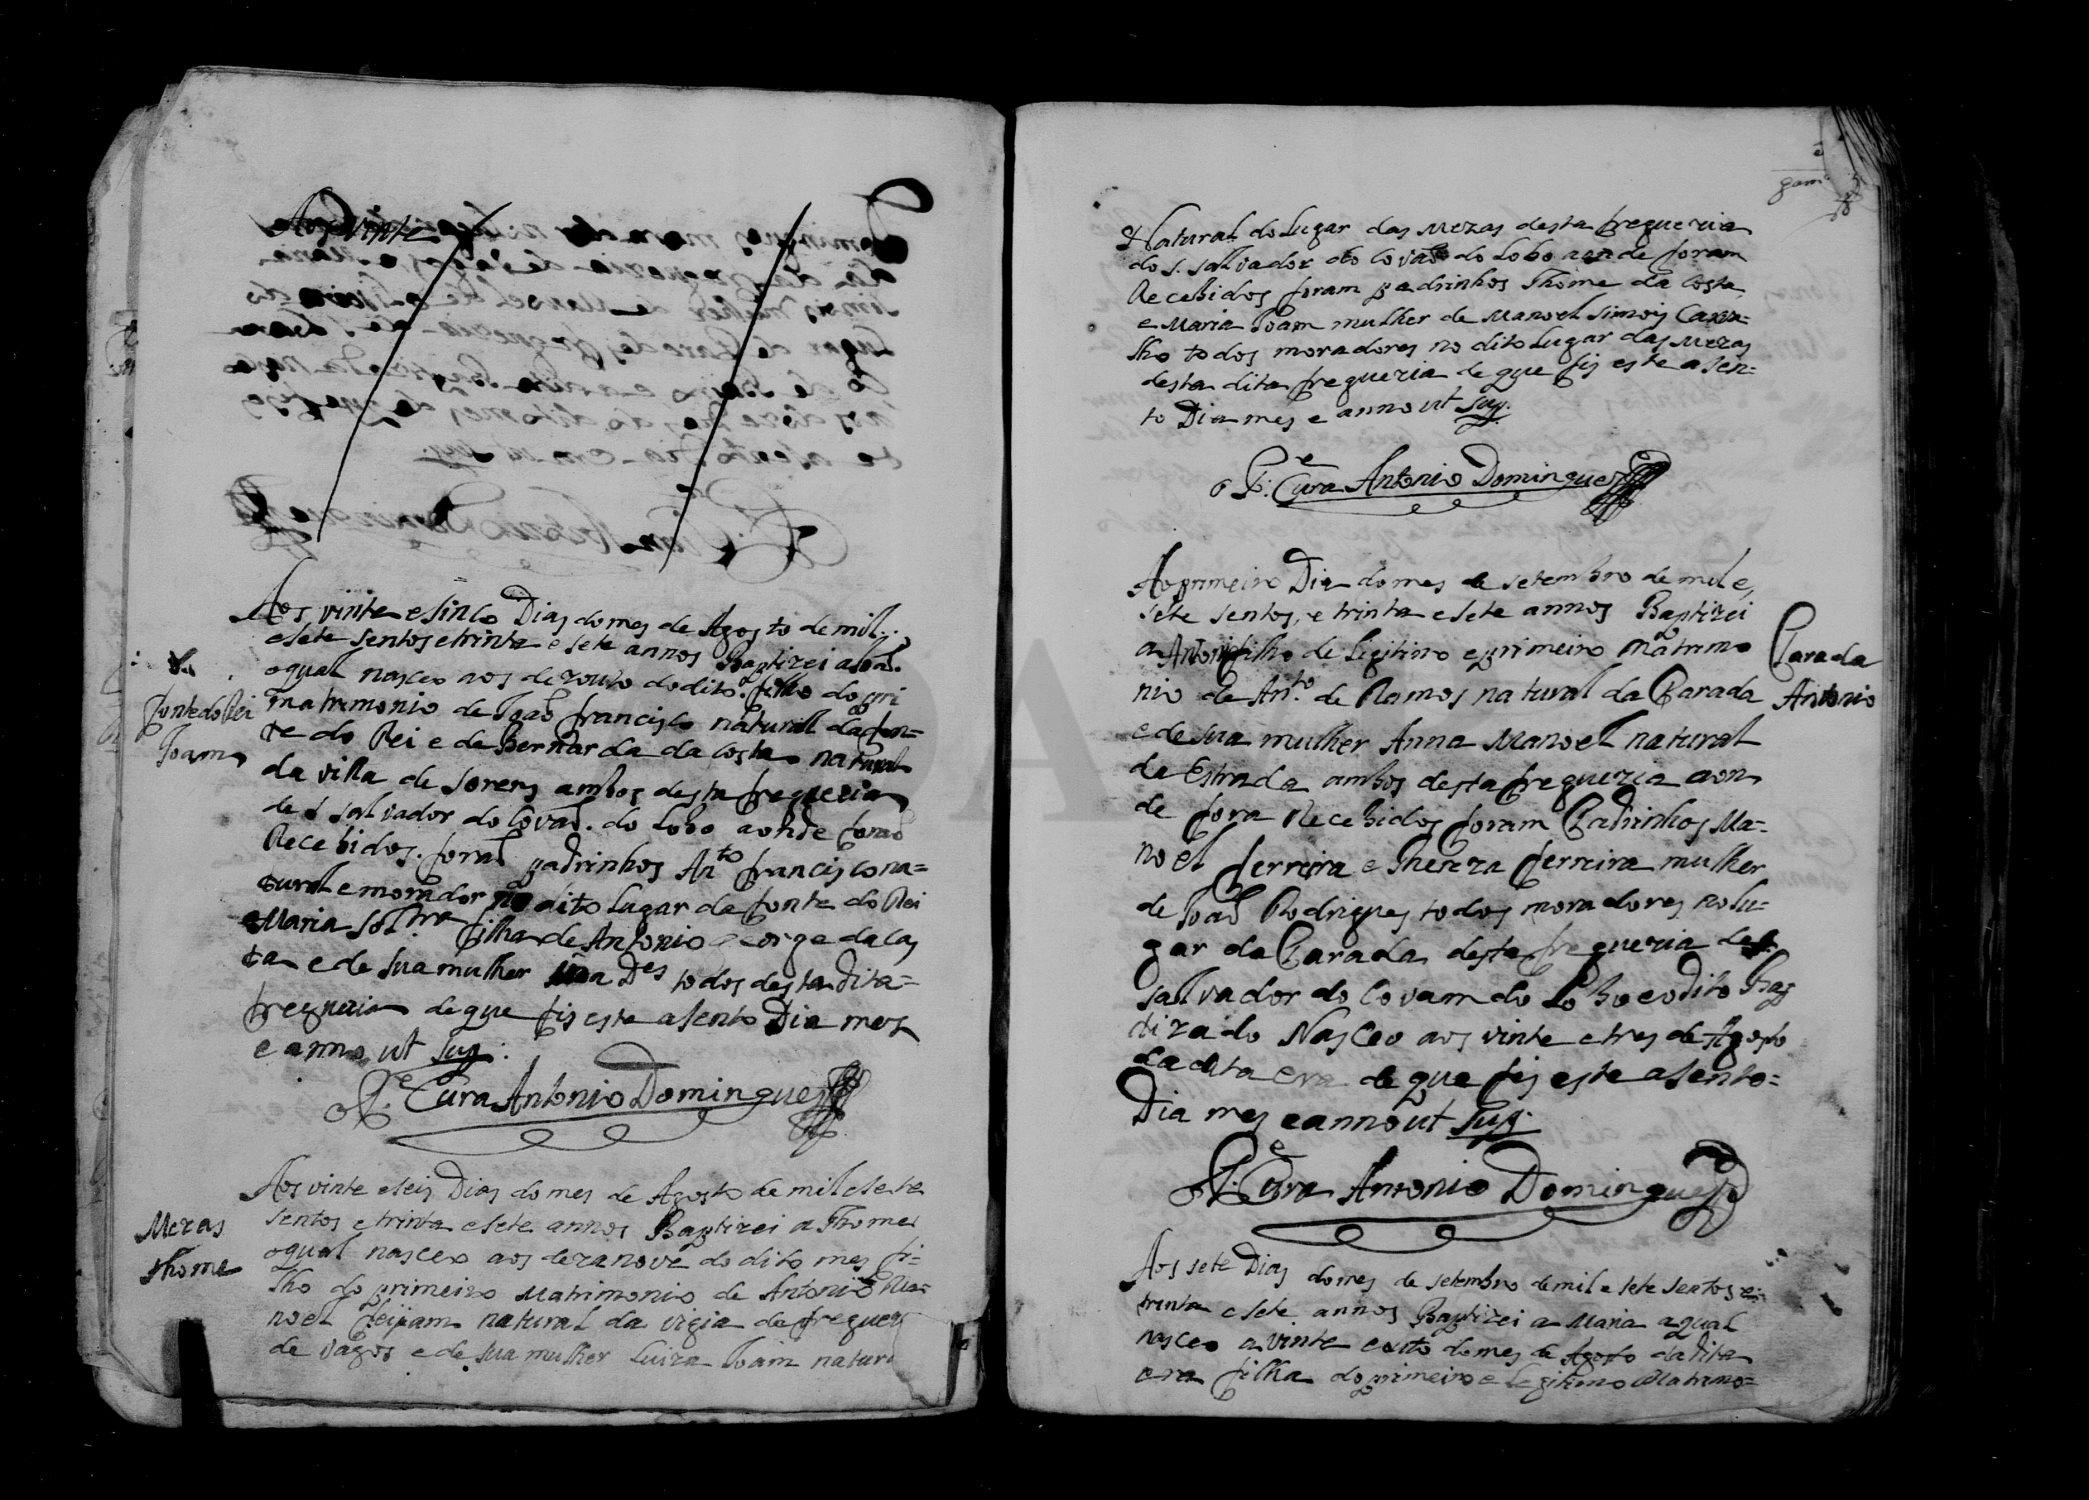 Aos vinte
Aos vinte e sinco Dias do mes de Agosto de mil
e sete sentos e trinta e sete annos Baptizei a Joaõ
o qual nasceo aos dezouto do dito. filho do pri
matrimonio de Joaõ francisco natural da fon=
te do Rei e de Bernarda da Costa natural
da villa de sorens ambos desta freguezia
de S salvador do Covaõ. do Lobo aonde foraõ
Recebidos. foraõ padrinhos Anto francisco na=
tural e morador no dito Lugar da fonte do Rei
e Maria solтra filha de Antonio george da Cos
ta e de sua mulher Des todos desta dita=
freguezia de que fis este asento Dia mes
e anno ut sup.
Fonte do Rei
Joam
o Pe Cura Antonio Domingues
Aos vinte e seis Dias do mes de Agosto de mil e sete
sentos e trinta e sete annos Baptizei a Thome
o qual nasceo aos dezanove do dito mes fi=
lho do primeiro Matrimonio de Antonio Ma=
noel feijam natural da vigia da freguez
de vagos e de sua mulher Luiza Joam natur
Mezas
Thome
Natural do Lugar das Mezas desta freguezia
do S. salvador do Covaõ do Lobo aonde foram
Recebidos foram padrinhos Thome da Costa
e Maria Joam mulher de Manoel simois Carva=
lho todos moradores no dito Lugar das Mezas
desta dita freguezia de que fis este asen=
to Dia mes e anno ut sup.
o Pe Cura Antonio Domingues
Ao primeiro Dia do mes de setembro de mil e
sete sentos, e trinta e sete annos Baptizei
a Antonio filho de Ligitimo e primeiro matrimo
nio de Anto. de Ramos natural da Parada
e de sua mulher Anna Manoel natural
da Estrada ambos desta freguezia aon
de fora Recebidos foram Padrinhos Ma=
noel ferreira e Thereza ferreira mulher
de Joaõ Rodrigues todos moradores no lu=
gar da Parada desta freguezia de S.
salvador do Covam do Lobo e o dito Bap
tizado Nasceo aos vinte e tres de Agosto
da dita era de que fis este asento=
Dia mes e anno ut sup.
Parada
Antonio
o Pe Cura Antonio Domingues
Aos sete Dias do mes de setembro de mil e sete sentos e
trinta e sete annos Baptizei a Maria a qual
nasceo a vinte e outo do mes de Agosto da dita
era filha do primeiro e Legitimo Matrimo=